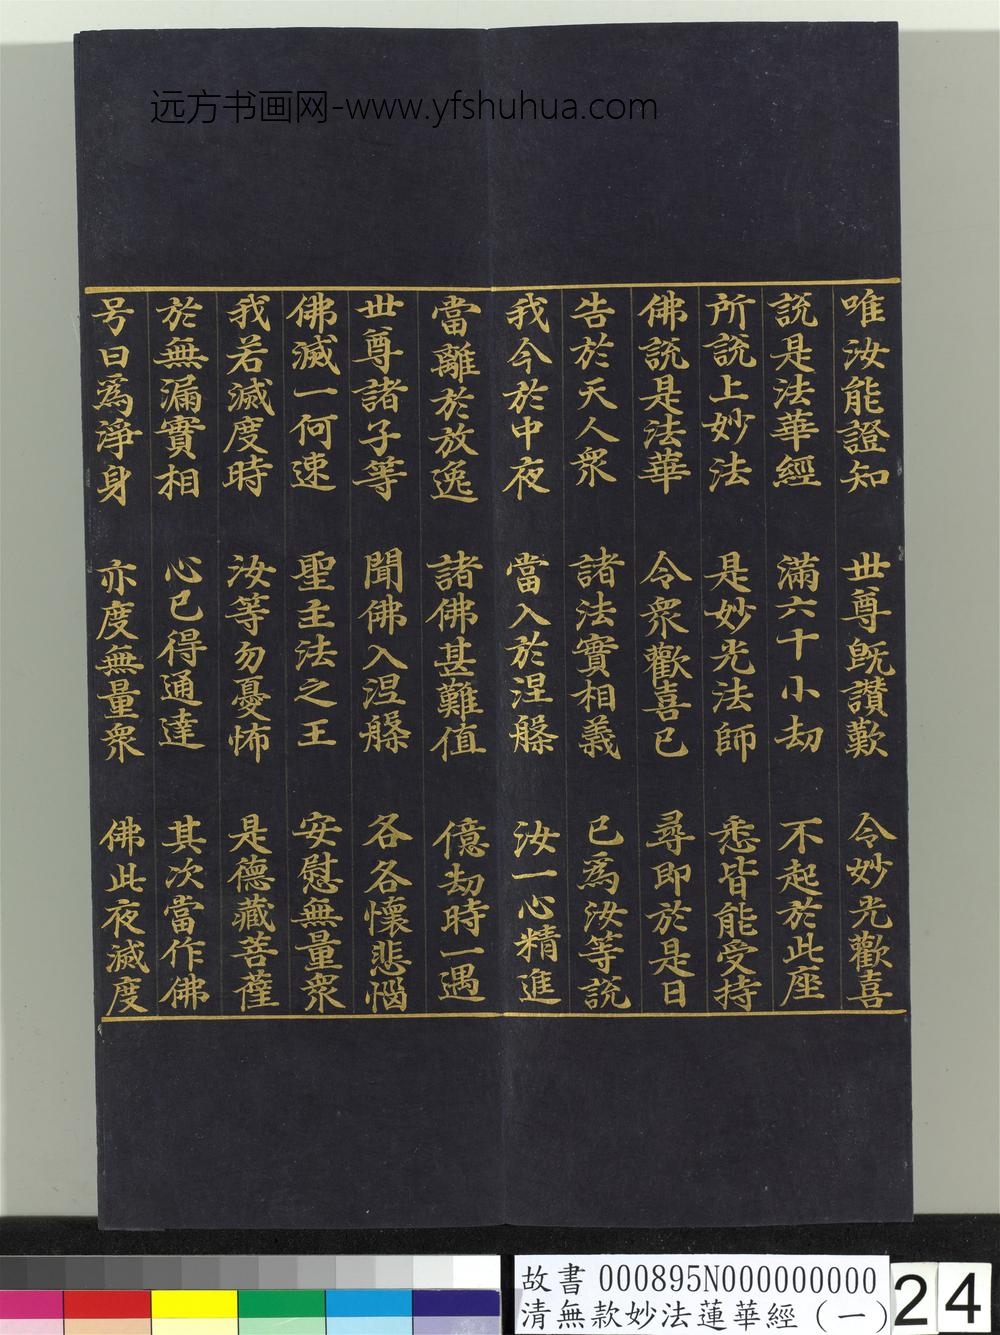 远方书画网-www.yfshuhua.com
唯汝能證知 世尊既讃歎 令妙光歡喜
説是法華經 滿六十小劫 不起於此座
所説上妙法 是妙光法師 悉皆能受持
佛説是法華 令衆歡喜已 尋即於是日
告於天人衆 諸法實相義 已爲汝等説
我今於中夜 當入於涅槃 汝一心精進
當離於放逸 諸佛甚難值 億劫時一遇
世尊諸子等 聞佛入涅槃 各各懷悲惱
佛滅一何速 聖主法之王 安慰無量衆
我若滅度時 汝等勿憂怖 是德藏菩薩
於無漏實相 心已得通達 其次當作佛
号曰爲淨身 亦度無量衆 佛此夜滅度
故書 000895N000000000
清無款妙法蓮華經(一)
24